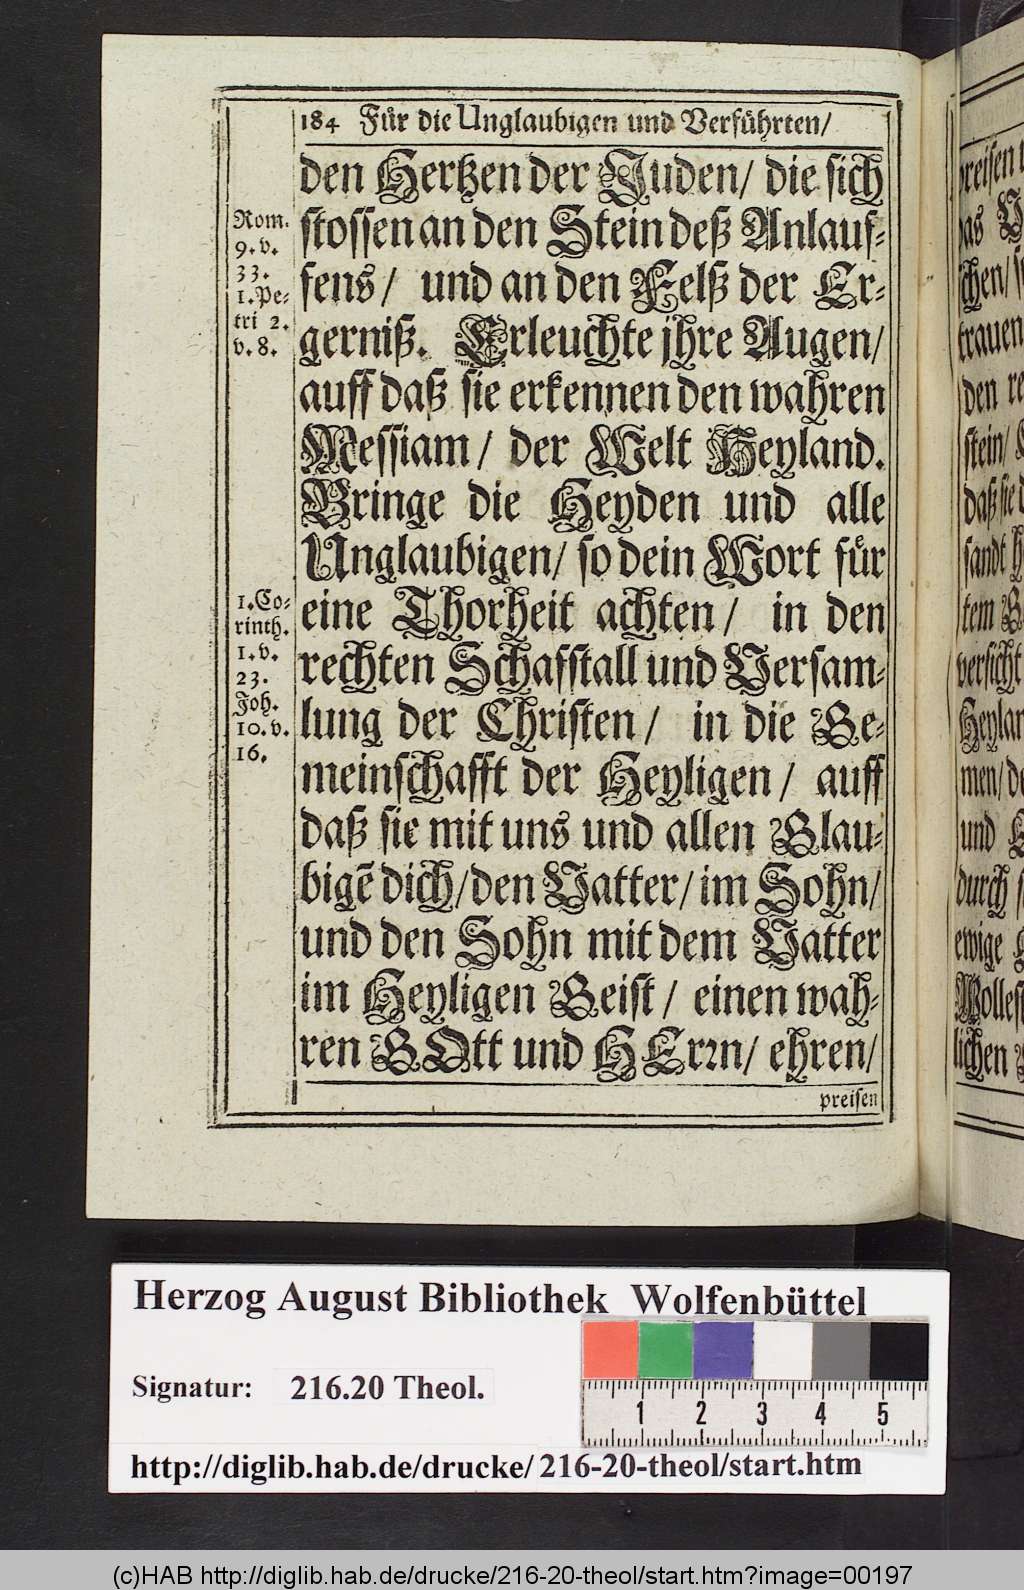 184 Für die Unglaubigen und Verführten/
den Hertzen der Juden/ die sich
stossen an den Stein deß Anlauf-
fens/ und an den Felß der Er-
gerniß. Erleuchte jhre Augen/
auff daß sie erkennen den wahren
Messiam/ der Welt Heyland.
Bringe die Heyden und alle
Unglaubigen/ so dein Wort für
eine Thorheit achten/ in den
rechten Schafstall und Versam-
lung der Christen/ in die Ge-
meinschafft der Heyligen/ auff
daß sie mit uns und allen Glau-
bigẽ dich/ den Vatter/ im Sohn/
und den Sohn mit dem Vatter
im Heyligen Geist/ einen wah-
ren GOtt und HErꝛn/ ehren/
preisen
Rom.
9. v.
33.
1. Pe-
tri 2.
v. 8.
1. Co-
rinth.
1. v.
23.
Joh.
10. v.
16.
den
stein/
und
durch
ewige
lichen
Herzog August Bibliothek Wolfenbüttel
Signatur: 216.20 Theol.
1 2 3 4 5
http://diglib.hab.de/drucke/216-20-theol/start.htm
(c)HAB http://diglib.hab.de/drucke/216-20-theol/start.htm?image=00197